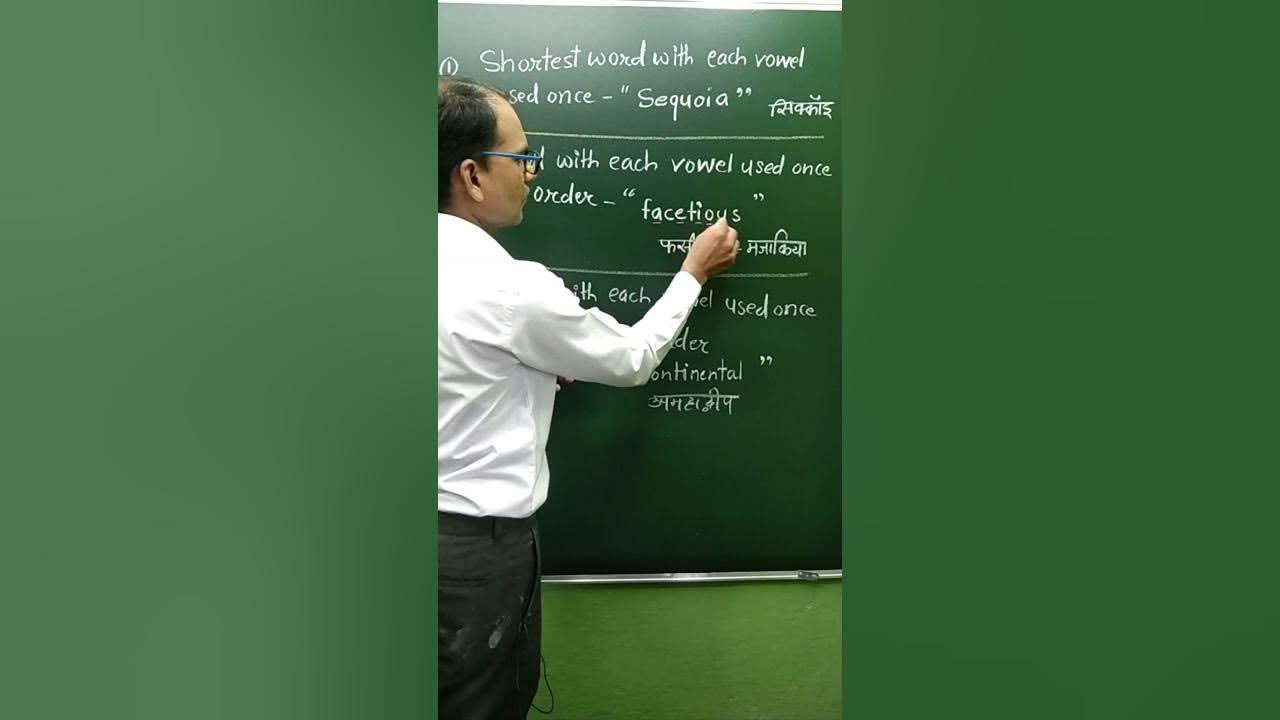 ① Shortest word with each vowel
sed once - "Sequoia" सिक्कॉइ
with each vowel used once
order - "facetious"
मजाकिया
with each vowel used once
ontinental"
अमहाद्वीप